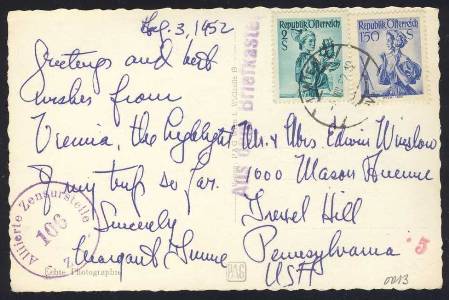 3, 1952
Greetings and best
wishes from
Vienna, the highlight
of my trip so far.
Sincerely
Margaret
Mr. & Mrs. Edwin Winslow
1000 Mason Avenue
Drexel Hill
Pennsylvania
USA
2
S
Republik Österreich
Republik Österreich
1.50 S
Aus dem Briefkasten
Alliierte Zensurstelle
106
Echte Photographie
PAG
0013